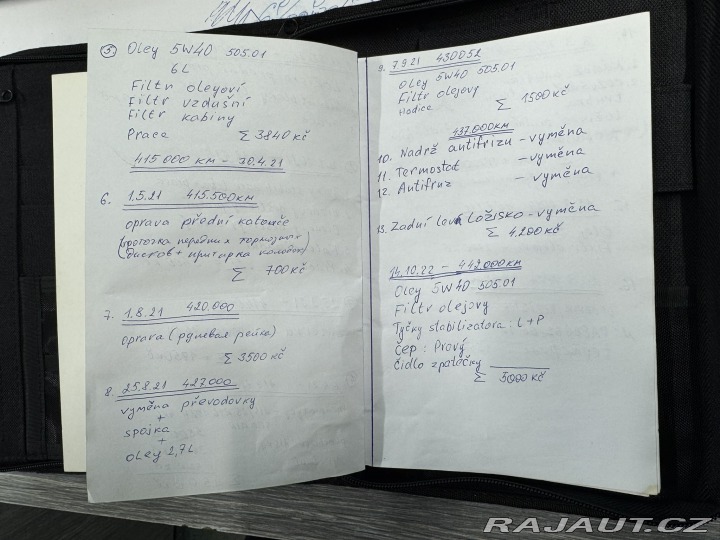 5) Oley 5W40 505.01
6L
Filtr oleyoví
Filtr vzdušní
Filtr kabiny
Praca Σ 3840 kč
415 000 KM - 30.4.21
6. 1.5.21 415.500KM
oprava přední kotouče
(проточка передних тормозных
дисков + притирка колодок)
Σ 700 kč
7. 1.8.21 420.000
oprava (рулевая рейка)
Σ 3500 kč
8. 25.8.21 427.000
vyměna převodovky
+
spojka
+
oley 2,7L
9. 7.9.21 430052
Oley 5W40 505.01
Filtr olejovy
Hadice Σ 1500 Kč
437.000KM
10. Nadrž antifrizu - vyměna
11. Termostat - vyměna
12. Antifruz - vyměna
13. Zadní levé Ložisko - vyměna
Σ 4.200 kč
14.10.22 - 442.000 KM
Oley 5W40 505.01
Filtr olejovy
Tyčky stabilizatora: L+P
Cep: Pravý
Čidlo zpátečky
Σ 5000 kč
RAJAUT.CZ